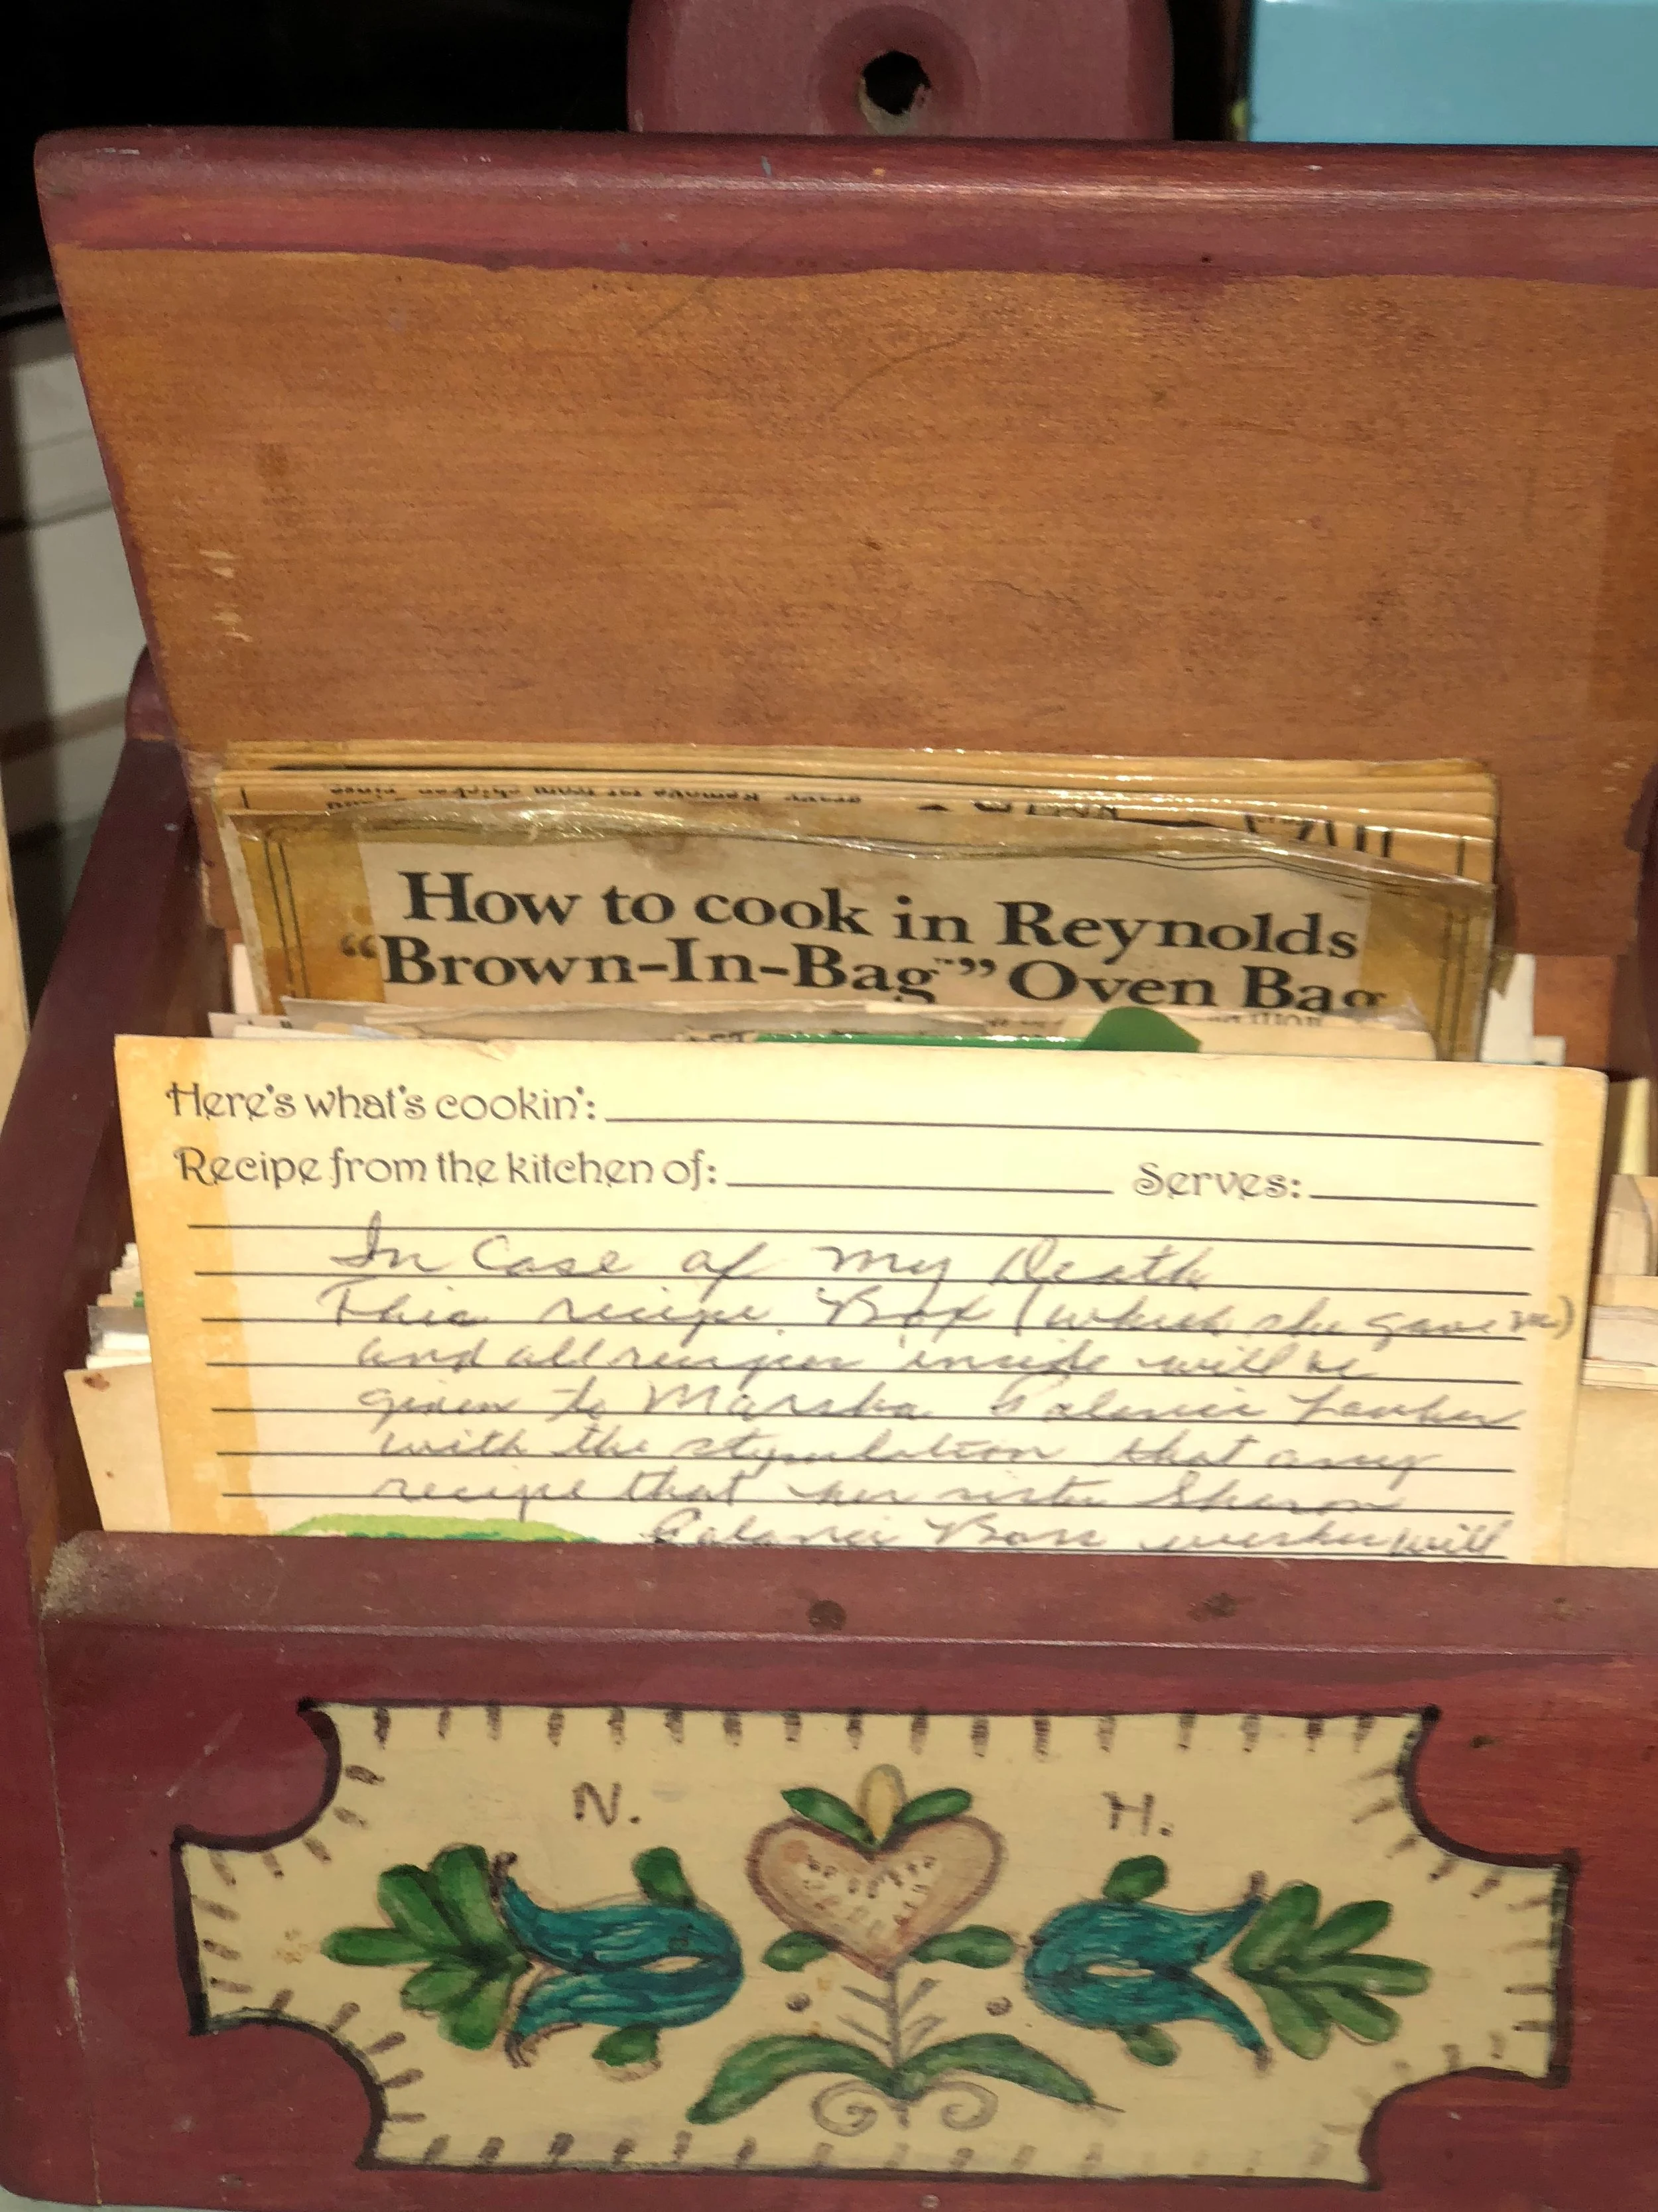 How to cook in Reynolds
“Brown-In-Bag™” Oven Bag
Here's what's cookin':
Recipe from the kitchen of: Serves:
In Case of my Death
This recipe Box (which she gave me)
and all recipes inside will be
given to Marsha
with the stypulation that any
recipe that her sister Sharon
wishes will
N. H.